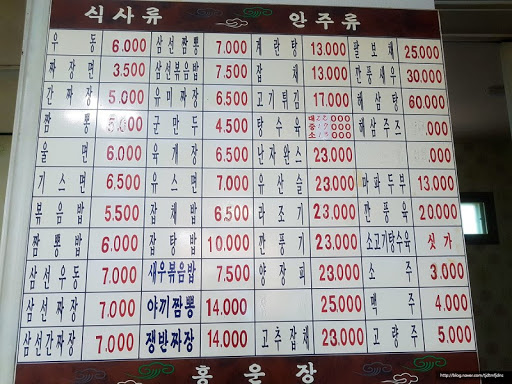 식사류 안주류
우동 6.000 삼선짬뽕 7.000 계란탕 13.000 팔보채 25.000
짜장면 3.500 삼선볶음밥 7.500 잡채 13.000 깐풍새우 30.000
간짜장 5.000 유미짜장 6.500 고기튀김 17.000 해삼탕 60.000
짬뽕 5.000 군만두 4.500 탕수육 대 22.000 중 17.000 소 13.000 해삼주즈 .000
울면 6.000 육개장 6.500 난자완스 23.000 .000
기스면 6.500 유스면 7.000 유산슬 23.000 마파두부 13.000
볶음밥 5.500 잡채밥 6.500 라조기 23.000 깐풍육 20.000
짬뽕밥 6.000 잡탕밥 10.000 깐풍기 23.000 소고기탕수육 싯가
삼선우동 7.000 새우볶음밥 7.500 양장피 23.000 소주 3.000
삼선짜장 7.000 야끼짬뽕 14.000 25.000 맥주 4.000
삼선간짜장 7.000 쟁반짜장 14.000 고추잡채 23.000 고량주 5.000
홍운장
http://blog.naver.com/tjdtmfjdnc